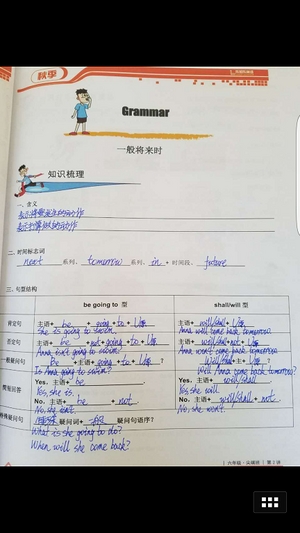 秋季
Grammar
一般将来时
知识梳理
一、含义
表示将要发生的动作
表示打算做的动作
二、时间标志词
next 系列、 tomorrow 系列、 in + 时间段、 future
三、句型结构
be going to 型 shall/will 型
肯定句 主语+ be + going +to + V原 主语+ will/shall + V原
She is going to swim. Anna will come back tomorrow.
否定句 主语+ be +not+ going +to + V原 主语+ will/shall+not + V原
Anna isn't going to swim. Anna won't come back tomorrow.
一般疑问句 Be +主语+ going +to + V原 ? Will/Shall+主语+ V原 ?
Is Anna going to swim? Will Anna come back tomorrow?
简短回答 Yes, 主语+ be . Yes, 主语+ will/shall .
Yes, she is. Yes, she will.
No, 主语+ be + not . No, 主语+ will/shall + not .
No, she isn't. No, she won't.
特殊疑问句 特殊 疑问词+ 一般 疑问句语序?
What is she going to do?
When will she come back?
六年级·尖端班 第2讲